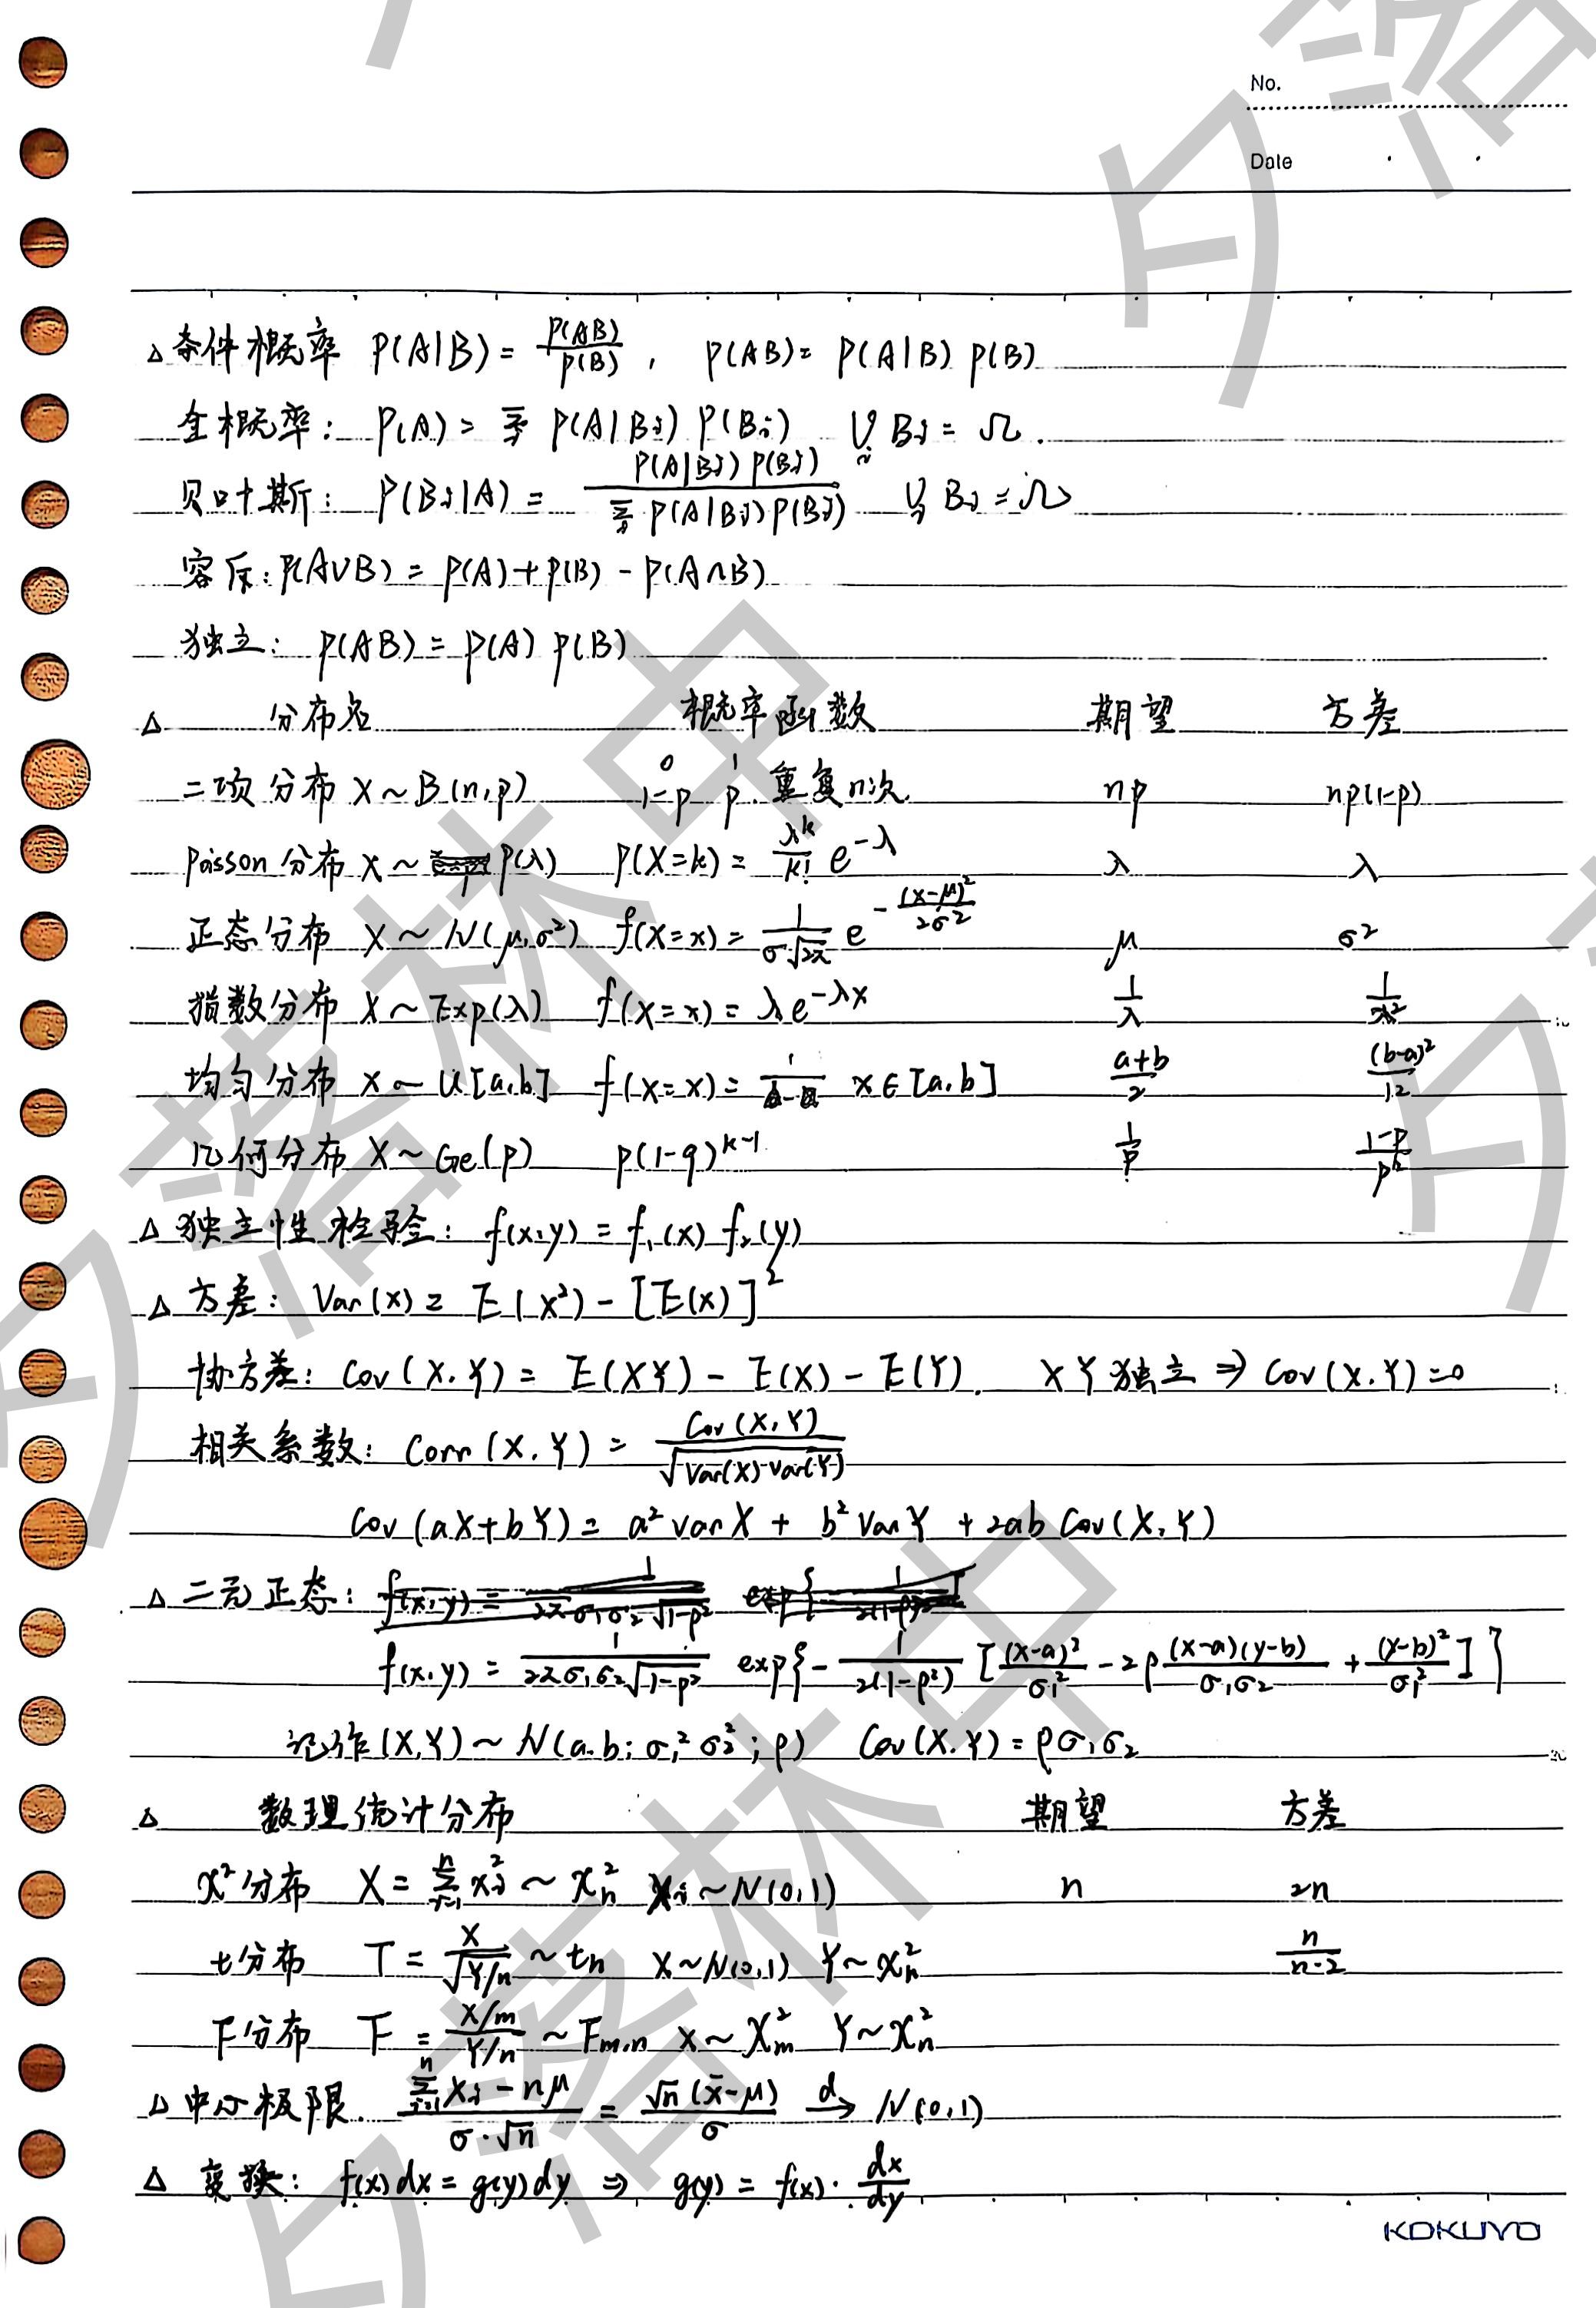 No.
Date
△条件概率 P(A|B) = P(AB)/P(B) , P(AB) = P(A|B) P(B)
全概率: P(A) = Σ_j P(A|B_j) P(B_j) ∪ B_j = Ω.
贝叶斯: P(B_j|A) = P(A|B_j) P(B_j) / Σ_j P(A|B_j) P(B_j) ∪_j B_j = Ω
容斥: P(A∪B) = P(A) + P(B) - P(A∩B)
独立: P(AB) = P(A) P(B)
△ 分布名 概率函数 期望 方差
二项分布 X~B(n,p) 0 1 1-p p 重复n次 np np(1-p)
Poisson分布 X~ P(λ) P(X=k) = λ^k/k! e^{-λ} λ λ
正态分布 X~N(μ,σ²) f(X=x) = 1/(σ√2π) e^{-(x-μ)²/2σ²} μ σ²
指数分布 X~Exp(λ) f(X=x) = λe^{-λx} 1/λ 1/λ²
均匀分布 X~U[a,b] f(X=x) = 1/(b-a) x∈[a,b] (a+b)/2 (b-a)²/12
几何分布 X~Ge(p) p(1-q)^{k-1} 1/p (1-p)/p²
△独立性检验: f(x,y) = f₁(x) f₂(y)
△方差: Var(X) = E(X²) - [E(X)]²
协方差: Cov(X,Y) = E(XY) - E(X) - E(Y). X Y 独立 ⇒ Cov(X,Y)=0
相关系数: Corr(X,Y) = Cov(X,Y)/√(Var(X)·Var(Y))
Cov(aX+bY) = a² Var X + b² Var Y + 2ab Cov(X,Y)
△二元正态:
f(x,y) = 1/(2πσ₁σ₂√(1-ρ²)) exp{-1/(2(1-ρ²)) [(x-a)²/σ₁² - 2ρ(x-a)(y-b)/(σ₁σ₂) + (y-b)²/σ₁²]}
记作(X,Y) ~ N(a,b; σ₁² σ₂²; ρ) Cov(X,Y) = ρσ₁σ₂
△ 数理统计分布 期望 方差
χ²分布 X = Σ_{j=1}^n X_j² ~ χ_n² X_j~N(0,1) n 2n
t分布 T = X/√(Y/n) ~ t_n X~N(0,1) Y~χ_n² n/(n-2)
F分布 F = (X/m)/(Y/n) ~ F_{m,n} X~χ_m² Y~χ_n²
△中心极限. (Σ_{j=1}^n X_j - nμ)/(σ·√n) = √n(x̄-μ)/σ →^d N(0,1)
△变换: f(x)dx = g(y)dy ⇒ g(y) = f(x)·dx/dy
KOKUYO
夕落林中
夕落林中